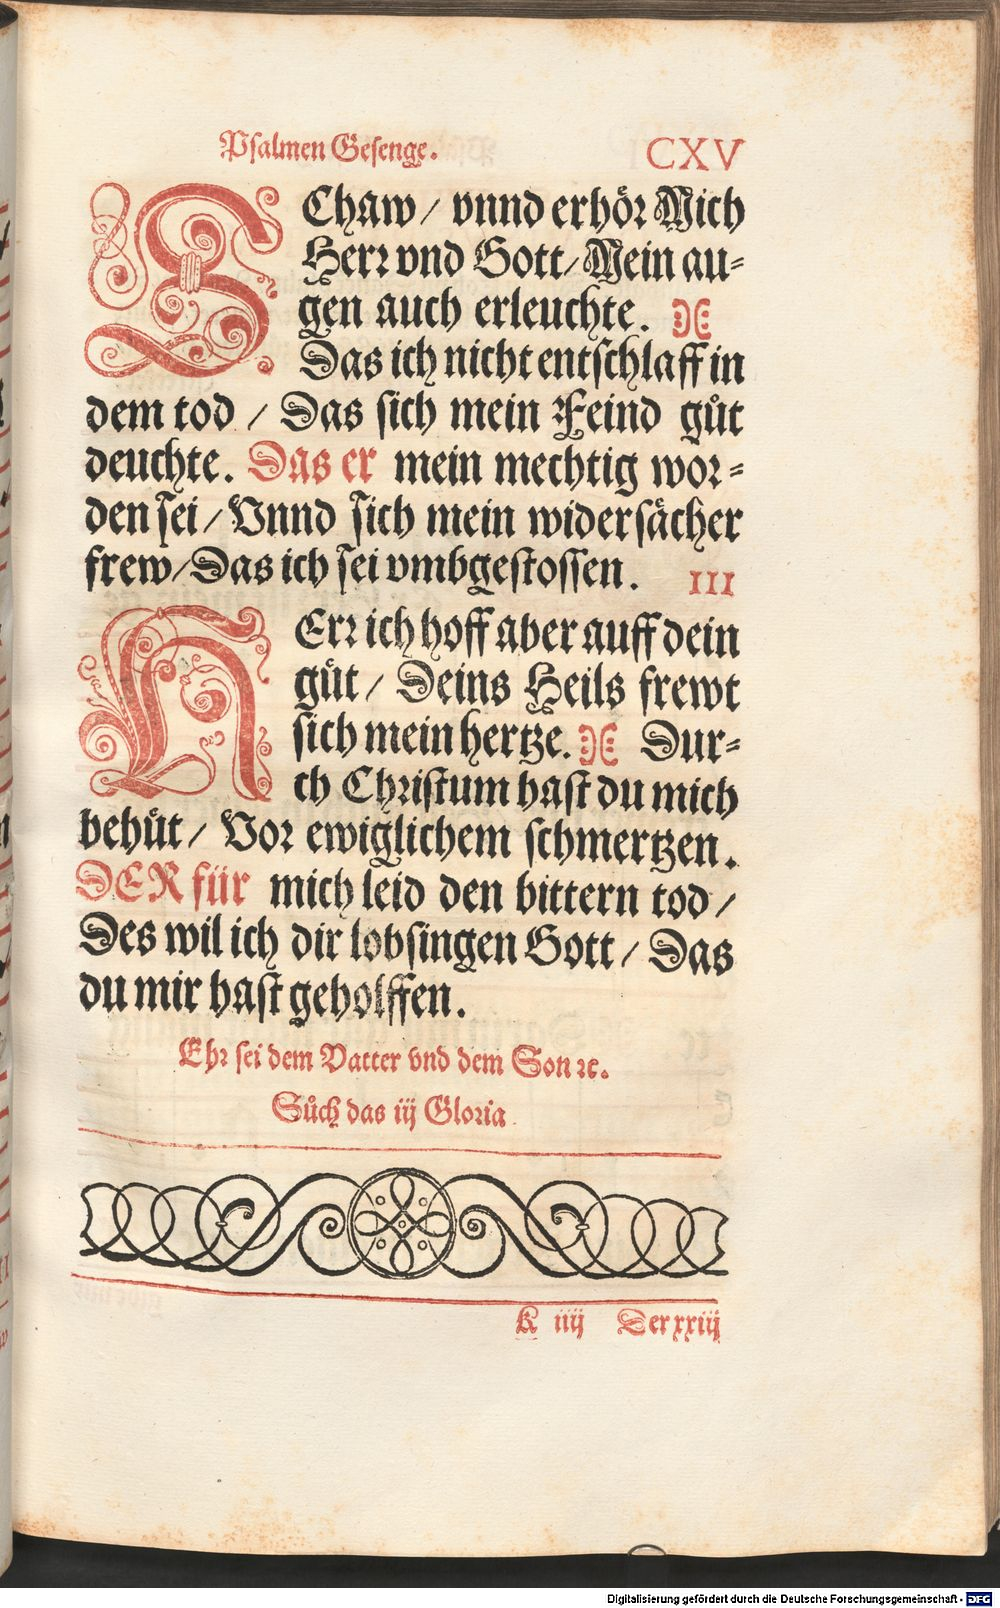 Psalmen Gesenge. CXV
SChaw / vnnd erhör Mich
Herr vnd Gott / Mein au-
gen auch erleuchte.
Das ich nicht entschlaff in
dem tod / Das sich mein Feind guͤt
deuchte. Das er mein mechtig wor-
den sei / Vnnd sich mein widersächer
frew / Das ich sei vmbgestossen. III
HErr ich hoff aber auff dein
guͤt / Deins Heils frewt
sich mein hertze. Dur-
ch Christum hast du mich
behuͤt / Vor ewiglichem schmertzen.
DER für mich leid den bittern tod /
Des wil ich dir lobsingen Gott / Das
du mir hast geholffen.
Ehr sei dem Vatter vnd dem Son ꝛc.
Suͦch das iij Gloria.
K iiij Der xxiij
Digitalisierung gefördert durch die Deutsche Forschungsgemeinschaft - DFG